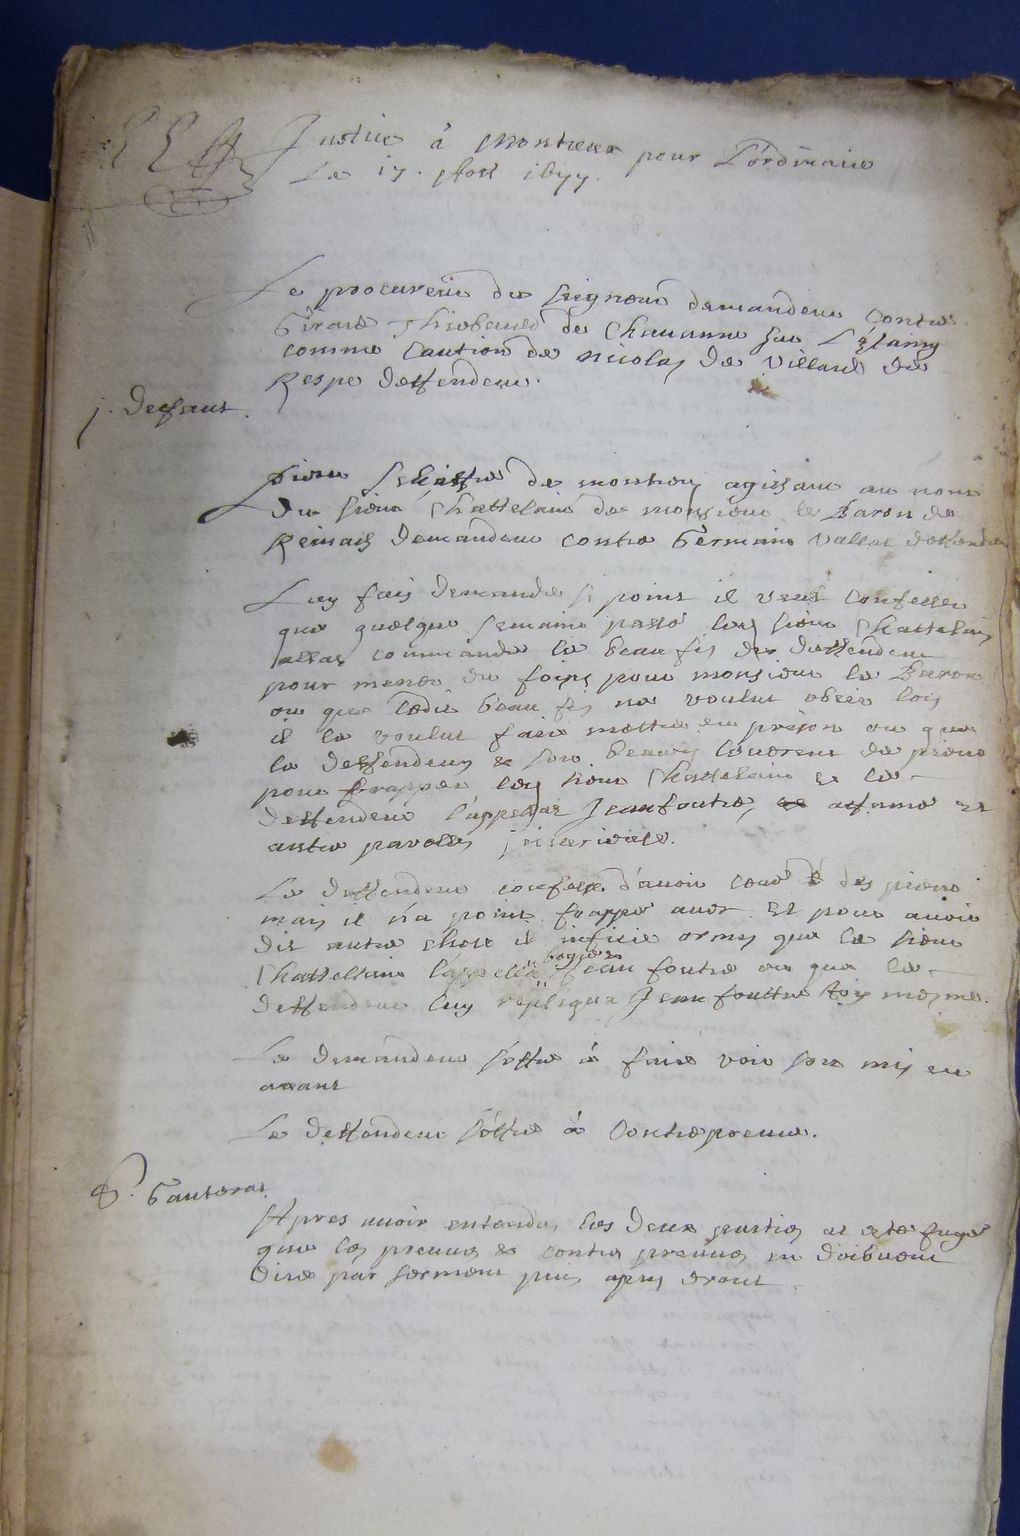 Justice à Montreux pour L'ordinaire
Le 17. Aoust 1677.
Le procureur du seigneur demandeur contre
Girard Thiebauld de Chauanne sur L'Estang
comme Caution de Nicolas de Villard du
Respe deffendeur.
j. deffaut.
de montreux agissant au nom
du sieur Chattelain de monsieur le Baron de
Reinach demandeur contre Germain Vallat deffendeur
Luy fais demande si point il veut confesser
que quelque semaine passé led sieur Chattelain
allat commander le beau fis du deffendeur
pour mener du foing pour monsieur le Baron
ou que ledit beau fis ne voulut obeir lors
il le voulut faire mettre en prison ou que
le deffendeur et son beaufis leverent de pierre
pour frapper led sieur Chattelain et le
deffendeur l'appellat Jeanfoutre, affamé et
autre parolles injurieuse.
Le deffendeur confesse d'avoir levé des pierre
mais il n'a point frappé aver et pour avoir
dit autre chose il inficie ormis que le sieur
Chattellain l'appella bogre Jean foutre ou que le
deffendeur luy repliqua Jean fouttre toy mesme.
Le demandeur s'offre à faire voir son mis en
avant
Le deffendeur s'offre à contrepreuve.
Apres avoir entendu les deux parties at esté jugé
que les preuves et contre preuves en doibvent
dire par serment puis apres droit